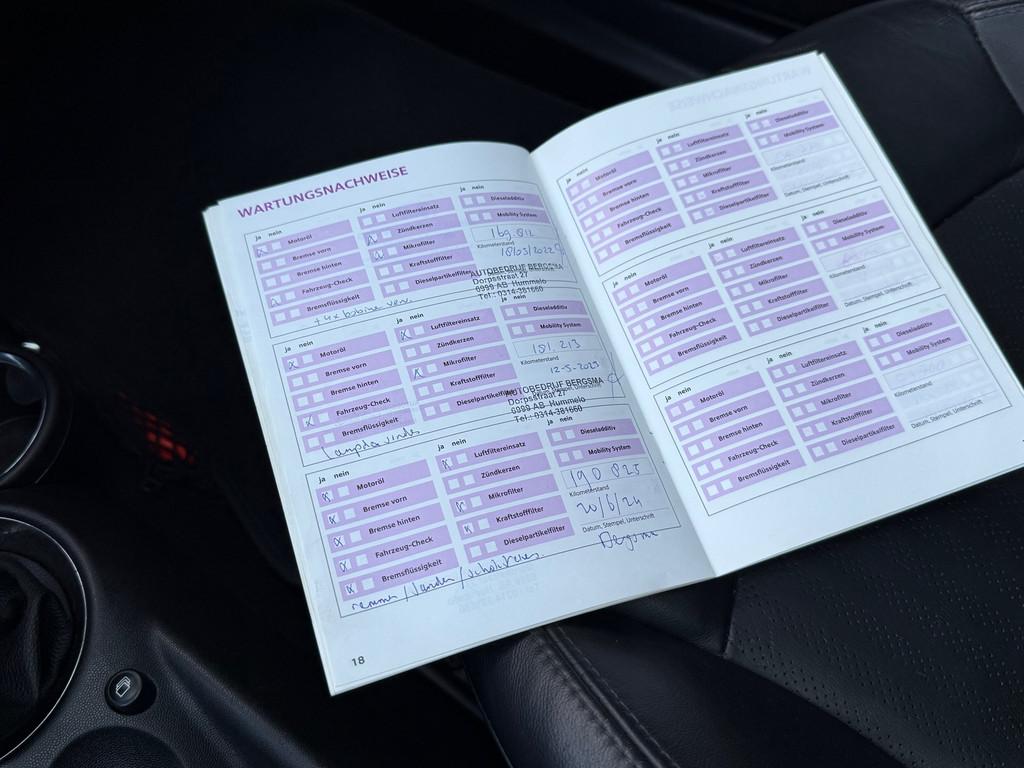 WARTUNGSNACHWEISE
ja nein
Motoröl
Bremse vorn
Bremse hinten
Fahrzeug-Check
Bremsflüssigkeit
ja nein
Luftfiltereinsatz
Zündkerzen
Mikrofilter
Kraftstofffilter
Dieselpartikelfilter
ja nein
Dieseladditiv
Mobility System
169.812
Kilometerstand
18/03/2022
AUTOBEDRIJF BERGSMA
Dorpsstraat 27
6999 AB Hummelo
Tel.: 0314-381660
+ 4x bobine
ja nein
Motoröl
Bremse vorn
Bremse hinten
Fahrzeug-Check
Bremsflüssigkeit
ja nein
Luftfiltereinsatz
Zündkerzen
Mikrofilter
Kraftstofffilter
Dieselpartikelfilter
ja nein
Dieseladditiv
Mobility System
181.213
Kilometerstand
12-5-2023
AUTOBEDRIJF BERGSMA
Dorpsstraat 27
6999 AB Hummelo
Tel.: 0314-381660
ja nein
Motoröl
Bremse vorn
Bremse hinten
Fahrzeug-Check
Bremsflüssigkeit
ja nein
Luftfiltereinsatz
Zündkerzen
Mikrofilter
Kraftstofffilter
Dieselpartikelfilter
ja nein
Dieseladditiv
Mobility System
190 825
Kilometerstand
20/6/24
Datum, Stempel, Unterschrift
Bergsma
remmen / banden /
18
ja nein
Motoröl
Bremse vorn
Bremse hinten
Fahrzeug-Check
Bremsflüssigkeit
ja nein
Luftfiltereinsatz
Zündkerzen
Mikrofilter
Kraftstofffilter
Dieselpartikelfilter
ja nein
Dieseladditiv
Mobility System
Kilometerstand
Datum, Stempel, Unterschrift
ja nein
Motoröl
Bremse vorn
Bremse hinten
Fahrzeug-Check
Bremsflüssigkeit
ja nein
Luftfiltereinsatz
Zündkerzen
Mikrofilter
Kraftstofffilter
Dieselpartikelfilter
ja nein
Dieseladditiv
Mobility System
Kilometerstand
Datum, Stempel, Unterschrift
ja nein
Motoröl
Bremse vorn
Bremse hinten
Fahrzeug-Check
Bremsflüssigkeit
ja nein
Luftfiltereinsatz
Zündkerzen
Mikrofilter
Kraftstofffilter
Dieselpartikelfilter
ja nein
Dieseladditiv
Mobility System
Kilometerstand
Datum, Stempel, Unterschrift